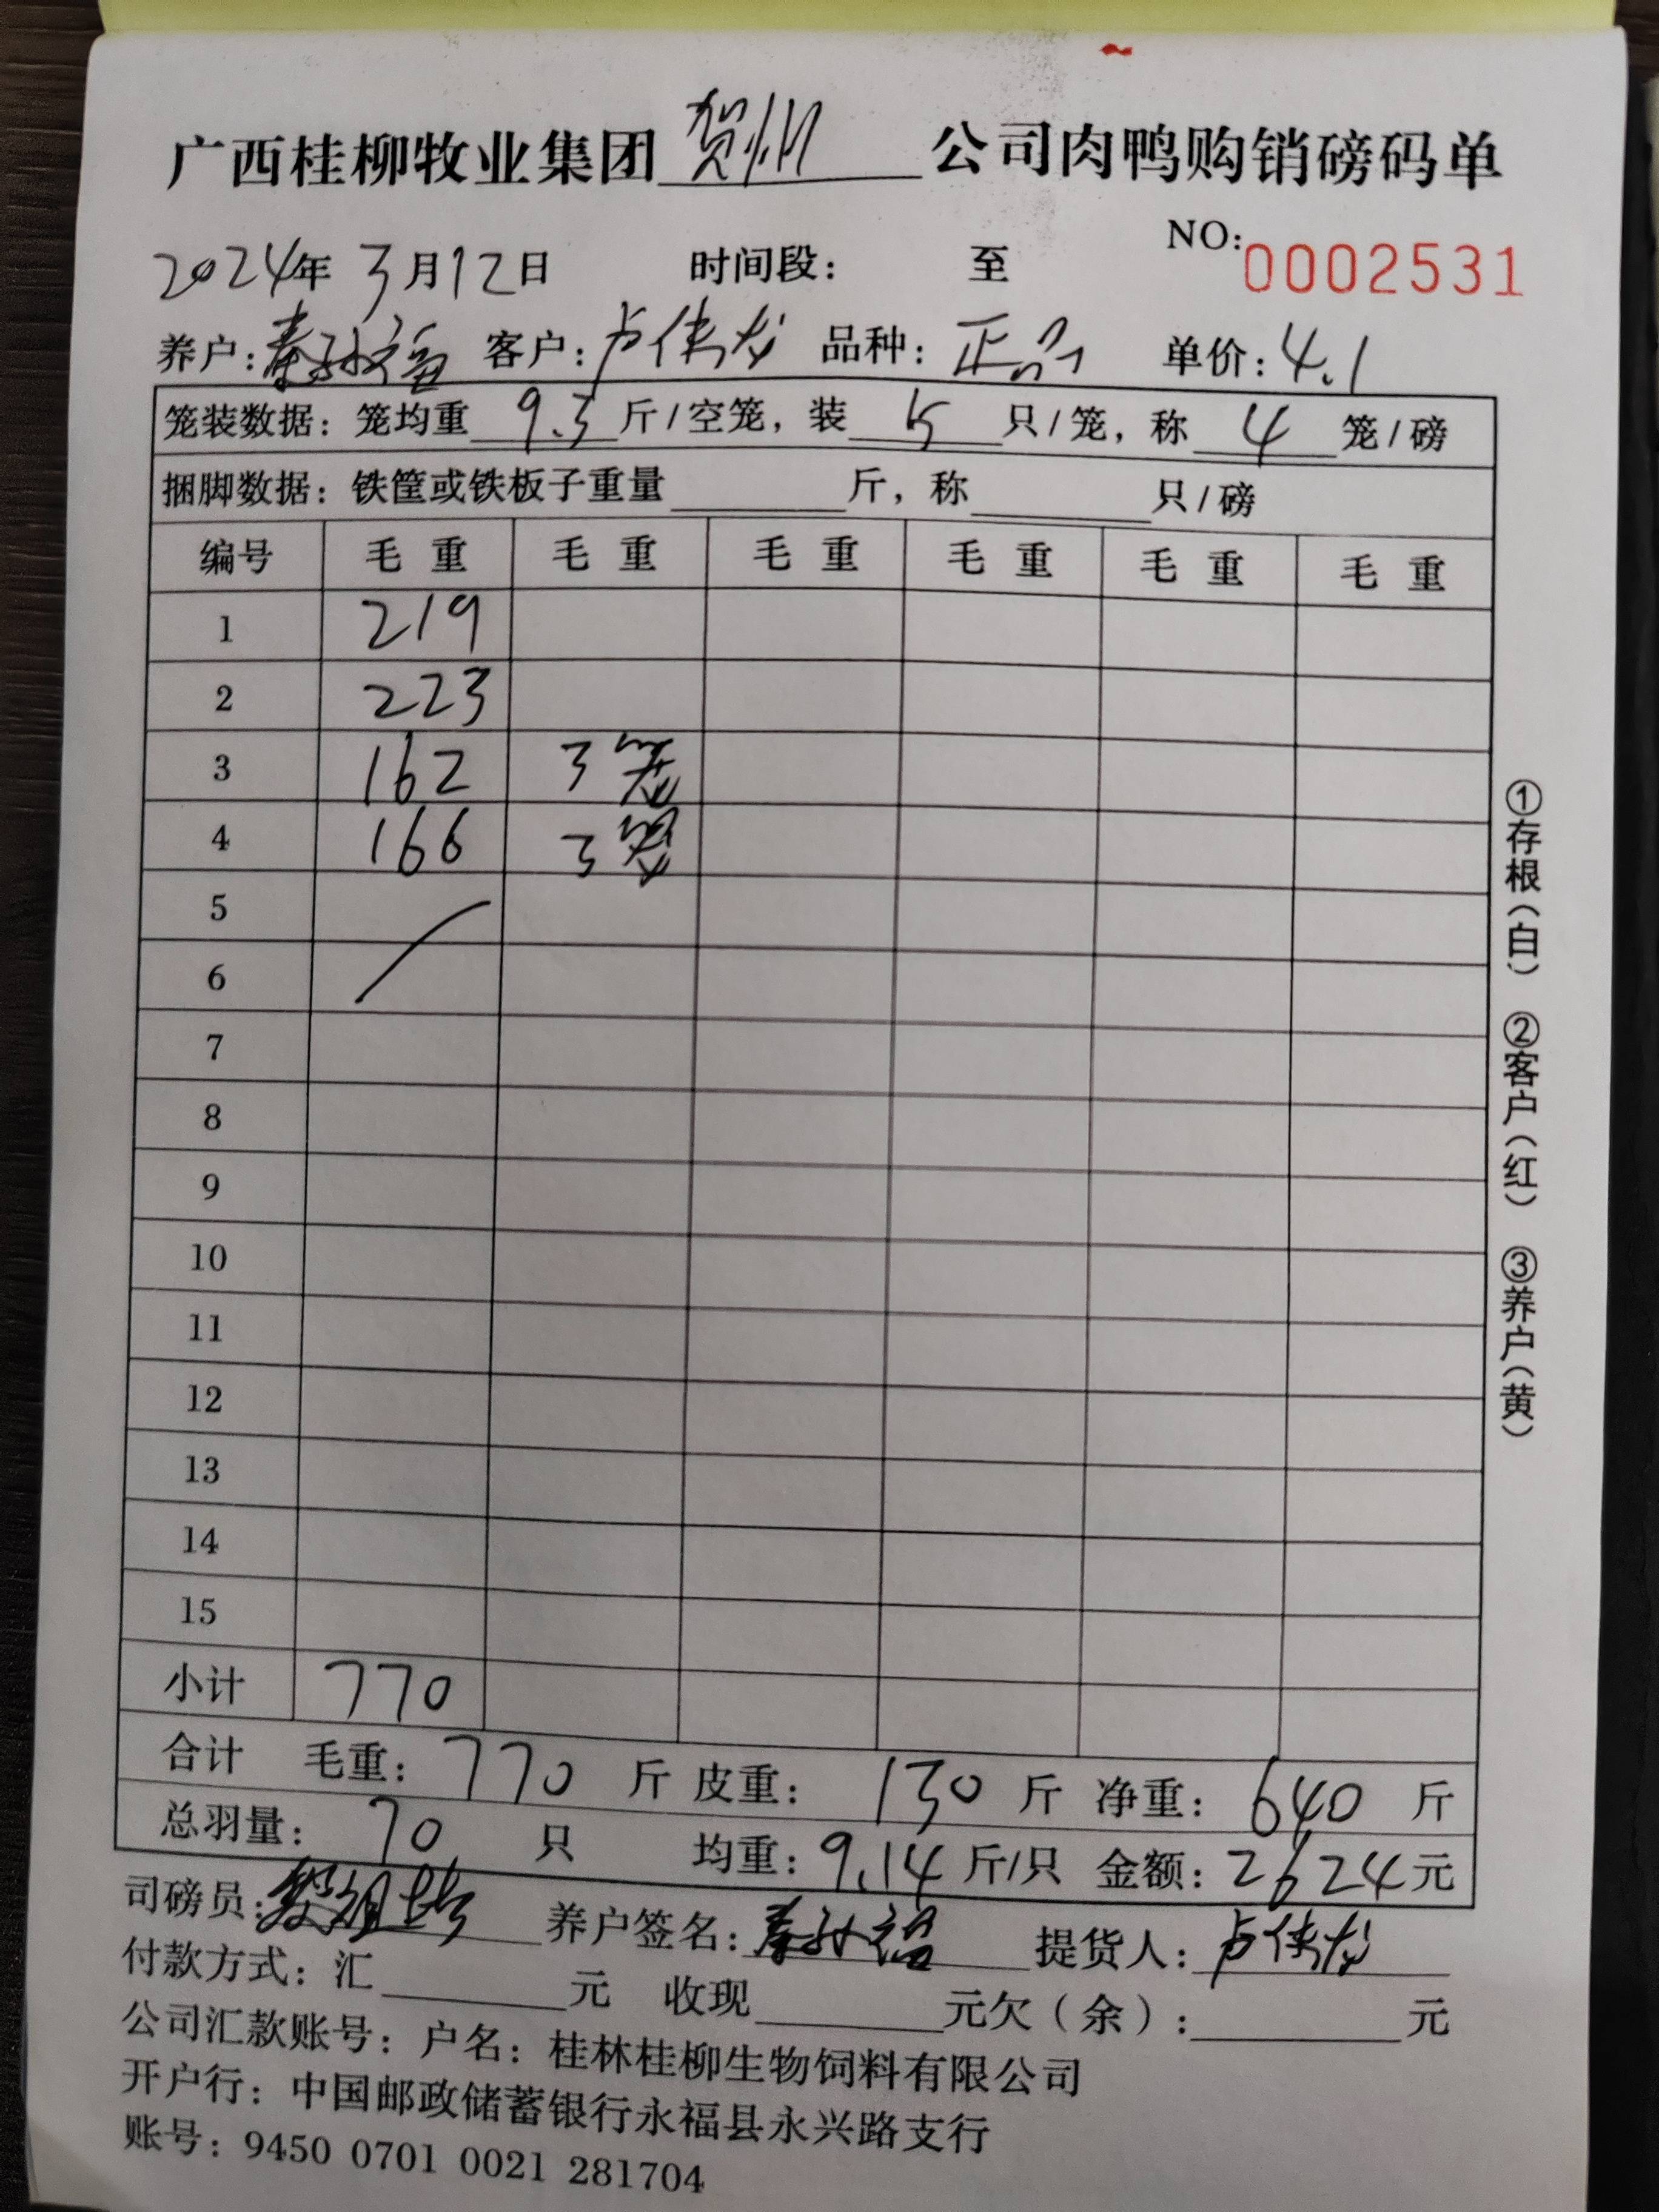 广西桂柳牧业集团贺州公司肉鸭购销磅码单
NO:0002531
2024年3月12日 时间段: 至
养户:秦孙福 客户:卢伟龙 品种:正品 单价:4.1
笼装数据:笼均重9.3斤/空笼,装5只/笼,称4笼/磅
捆脚数据:铁筐或铁板子重量 斤,称 只/磅
编号 毛重 毛重 毛重 毛重 毛重 毛重
1 219
2 223
3 162 3笼
4 166 3笼
5
6
7
8
9
10
11
12
13
14
15
小计 770
合计 毛重:770斤 皮重:130斤 净重:640斤
总羽量:70只 均重:9.14斤/只 金额:2624元
司磅员: 养户签名:秦孙福 提货人:卢伟龙
付款方式:汇 元 收现 元欠(余): 元
公司汇款账号:户名:桂林桂柳生物饲料有限公司
开户行:中国邮政储蓄银行永福县永兴路支行
账号:9450 0701 0021 281704
①存根(白) ②客户(红) ③养户(黄)